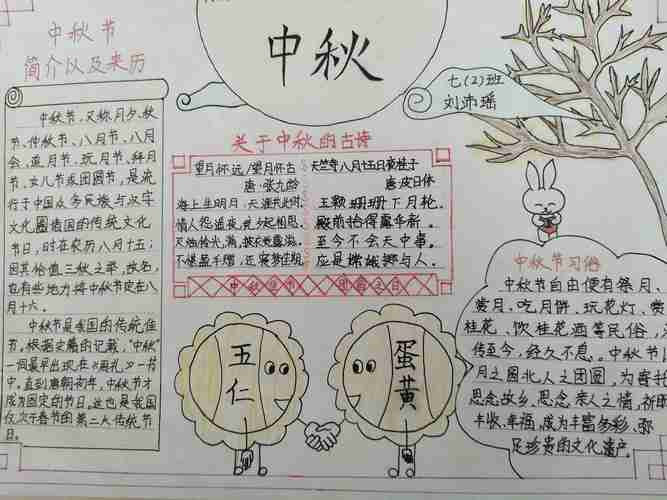 中秋
七(2)班
刘沛瑶
中秋节
简介以及来历
中秋节,又称月夕、秋
节、仲秋节、八月节、八月
会、追月节、玩月节、拜月
节、女儿节或团圆节,是流
行于中国众多民族与汉字
文化圈诸国的传统文化
节日,时在农历八月十五;
因其恰值三秋之半,故名,
也有些地方将中秋节定在八
月十六。
中秋节是我国的传统佳
节。根据史籍的记载,“中秋”
一词最早出现在《周礼》一书
中。直到唐朝初年,中秋节才
成为固定的节日。这也是我国
仅次于春节的第二大传统节
日。
关于中秋的古诗
望月怀远/望月怀古
唐·张九龄
海上生明月,天涯共此时。
情人怨遥夜,竟夕起相思。
灭烛怜光满,披衣觉露滋。
不堪盈手赠,还寝梦佳期。
天竺寺八月十五日夜桂子
唐·皮日休
玉颗珊珊下月轮,
殿前拾得露华新。
至今不会天中事,
应是嫦娥掷与人。
中秋佳节
团圆之日
五仁
蛋黄
中秋节习俗
中秋节自由便有祭月、
赏月、吃月饼、玩花灯、赏
桂花、饮桂花酒等民俗,
传至今,经久不息。中秋节
月之圆北人之团圆,为寄
思念故乡,思念亲人之情,祈
丰收、幸福,成为丰富多彩、弥
足珍贵的文化遗产。